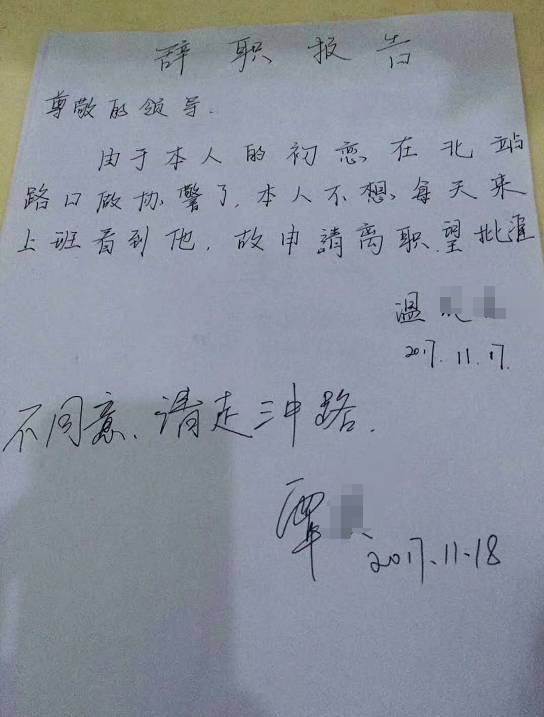 辞职报告
尊敬的领导.
由于本人的初恋在北站
路口做协警了,本人不想每天来
上班看到他,故申請离职望批准
温
2017.11.17.
不同意、请走三中路.
覃
2017.11-18